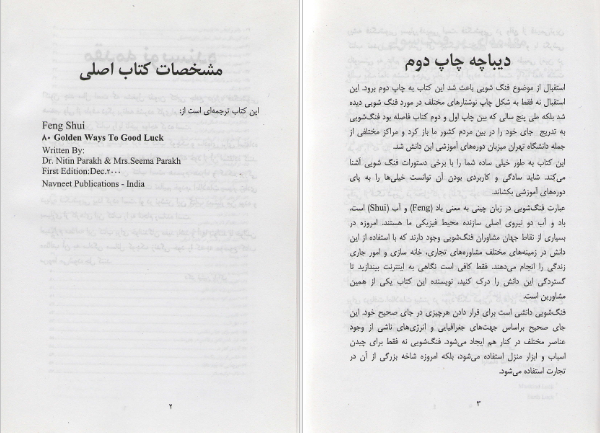 مشخصات کتاب اصلی
این کتاب ترجمه‌ای است از:
Feng Shui
۸۰ Golden Ways To Good Luck
Written By:
Dr. Nitin Parakh & Mrs.Seema Parakh
First Edition:Dec.۲۰۰۰
Navneet Publications - India
۲
دیباچه چاپ دوم
استقبال از موضوع فنگ شویی باعث شد این کتاب به چاپ دوم برود. این
استقبال نه فقط به شکل چاپ نوشتارهای مختلف در مورد فنگ شویی دیده
شد بلکه طی پنج سالی که بین چاپ اول و دوم کتاب فاصله بود فنگ‌شویی
به تدریج جای خود را در بین مردم کشور ما باز کرد و مراکز مختلفی از
جمله دانشگاه تهران میزبان دوره‌های آموزشی این دانش شد.
این کتاب به طور خیلی ساده شما را با برخی دستورات فنگ شویی آشنا
می‌کند. شاید سادگی و کاربردی بودن آن توانست خیلی‌ها را به پای
دوره‌های آموزشی بکشاند.
عبارت فنگ‌شویی در زبان چینی به معنی باد (Feng) و آب (Shui) است،
باد و آب دو نیروی اصلی سازنده محیط فیزیکی ما هستند. امروزه در
بسیاری از نقاط جهان مشاوران فنگ‌شویی وجود دارند که با استفاده از این
دانش در زمینه‌های مختلف مشاوره‌های تجاری، خانه سازی و امور جاری
زندگی را انجام می‌دهند. فقط کافی است نگاهی به اینترنت بیندازید تا
گستردگی این دانش را درک کنید، نویسنده این کتاب یکی از همین
مشاورین است.
فنگ‌شویی دانشی است برای قرار دادن هرچیزی در جای صحیح خود. این
جای صحیح براساس جهت‌های جغرافیایی و انرژی‌های ناشی از وجود
عناصر مختلف در کنار هم ایجاد می‌شود. فنگ‌شویی نه فقط برای چیدن
اسباب و ابزار منزل استفاده می‌شود، بلکه امروزه شاخه بزرگی از آن در
تجارت استفاده می‌شود.
۳